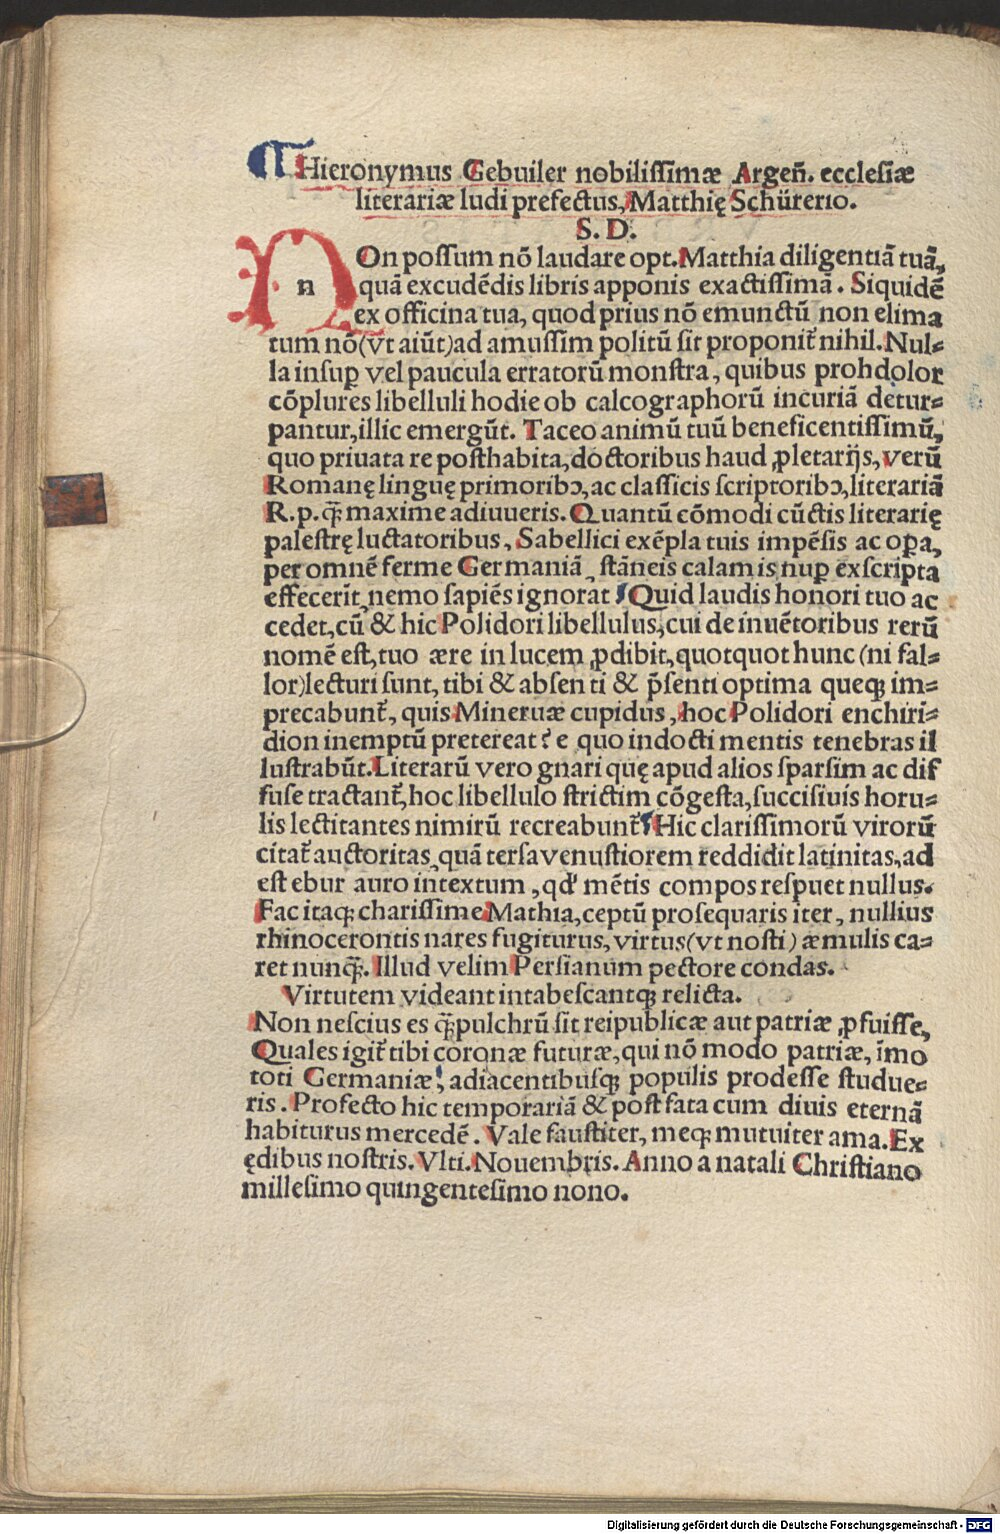 ¶Hieronymus Gebuiler nobilissimæ Argeñ. ecclesiæ
literariæ ludi prefectus, Matthię Schürerio.
S. D.
NOn possum nõ laudare opt. Matthia diligentiã tuã,
quã excudẽdis libris apponis exactissimã. Siquidẽ
ex officina tua, quod prius nõ emunctũ non elima
tum nõ(vt aiũt)ad amussim politũ sit proponit᷑ nihil. Nul-
la insuꝑ vel paucula erratorũ monstra, quibus prohdolor
cõplures libelluli hodie ob calcographorũ incuriã detur-
pantur, illic emergũt. Taceo animũ tuũ beneficentissimũ,
quo priuata re posthabita, doctoribus haud ꝓletarijs, verũ
Romanę linguę primoribꝰ, ac classicis scriptoribꝰ, literariã
R.p.q̃ maxime adiuueris. Quantũ cõmodi cũctis literarię
palestrę luctatoribus, Sabellici exẽpla tuis impẽsis ac oꝑa,
per omnẽ ferme Germaniã, stãneis calamis nuꝑ exscripta
effecerit, nemo sapiẽs ignorat ¶Quid laudis honori tuo ac
cedet, cũ & hic Polidori libellulus, cui de inuẽtoribus rerũ
nomẽ est, tuo ære in lucem ꝓdibit, quotquot hunc (ni fal-
lor)lecturi sunt, tibi & absenti & p̃senti optima queqꝫ im-
precabunt᷑, quis Mineruæ cupidus, hoc Polidori enchiri-
dion inemptũ pretereat? e quo indocti mentis tenebras il
lustrabũt. Literarũ vero gnari quę apud alios sparsim ac dif
fuse tractant᷑, hoc libellulo strictim cõgesta, succisiuis horu-
lis lectitantes nimirũ recreabunt᷑ ¶Hic clarissimorũ virorũ
citat᷑ auctoritas, quã tersa venustiorem reddidit latinitas, ad
est ebur auro intextum, qđ mẽtis compos respuet nullus.
Fac itaqꝫ charissime Mathia, ceptũ prosequaris iter, nullius
rhinocerontis nares fugiturus, virtus(vt nosti) æmulis ca-
ret nunq̃. Illud velim Persianum pectore condas.
Virtutem videant intabescantqꝫ relicta.
Non nescius es q̃ pulchrũ sit reipublicæ aut patriæ ꝓfuisse,
Quales igit᷑ tibi coronæ futuræ, qui nõ modo patriæ, ĩmo
toti Germaniæ, adiacentibusqꝫ populis prodesse studue-
ris. Profecto hic temporariã & post fata cum diuis eternã
habiturus mercedẽ. Vale faustiter, meqꝫ mutuiter ama. Ex
ędibus nostris. Vlti. Nouembris. Anno a natali Christiano
millesimo quingentesimo nono.
Digitalisierung gefördert durch die Deutsche Forschungsgemeinschaft - DFG